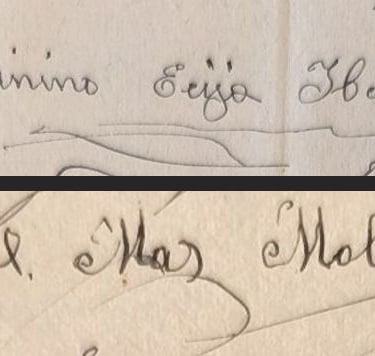 inino Ecija Ibe
l. Mas Mol